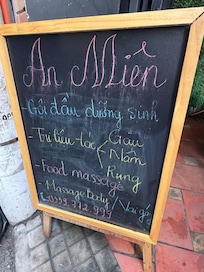 An Miên
- Gội đầu dưỡng sinh
- Trị liệu tóc < Gàu
Nấm
Rụng
- Food massage
- Massage Body / Vai gáy